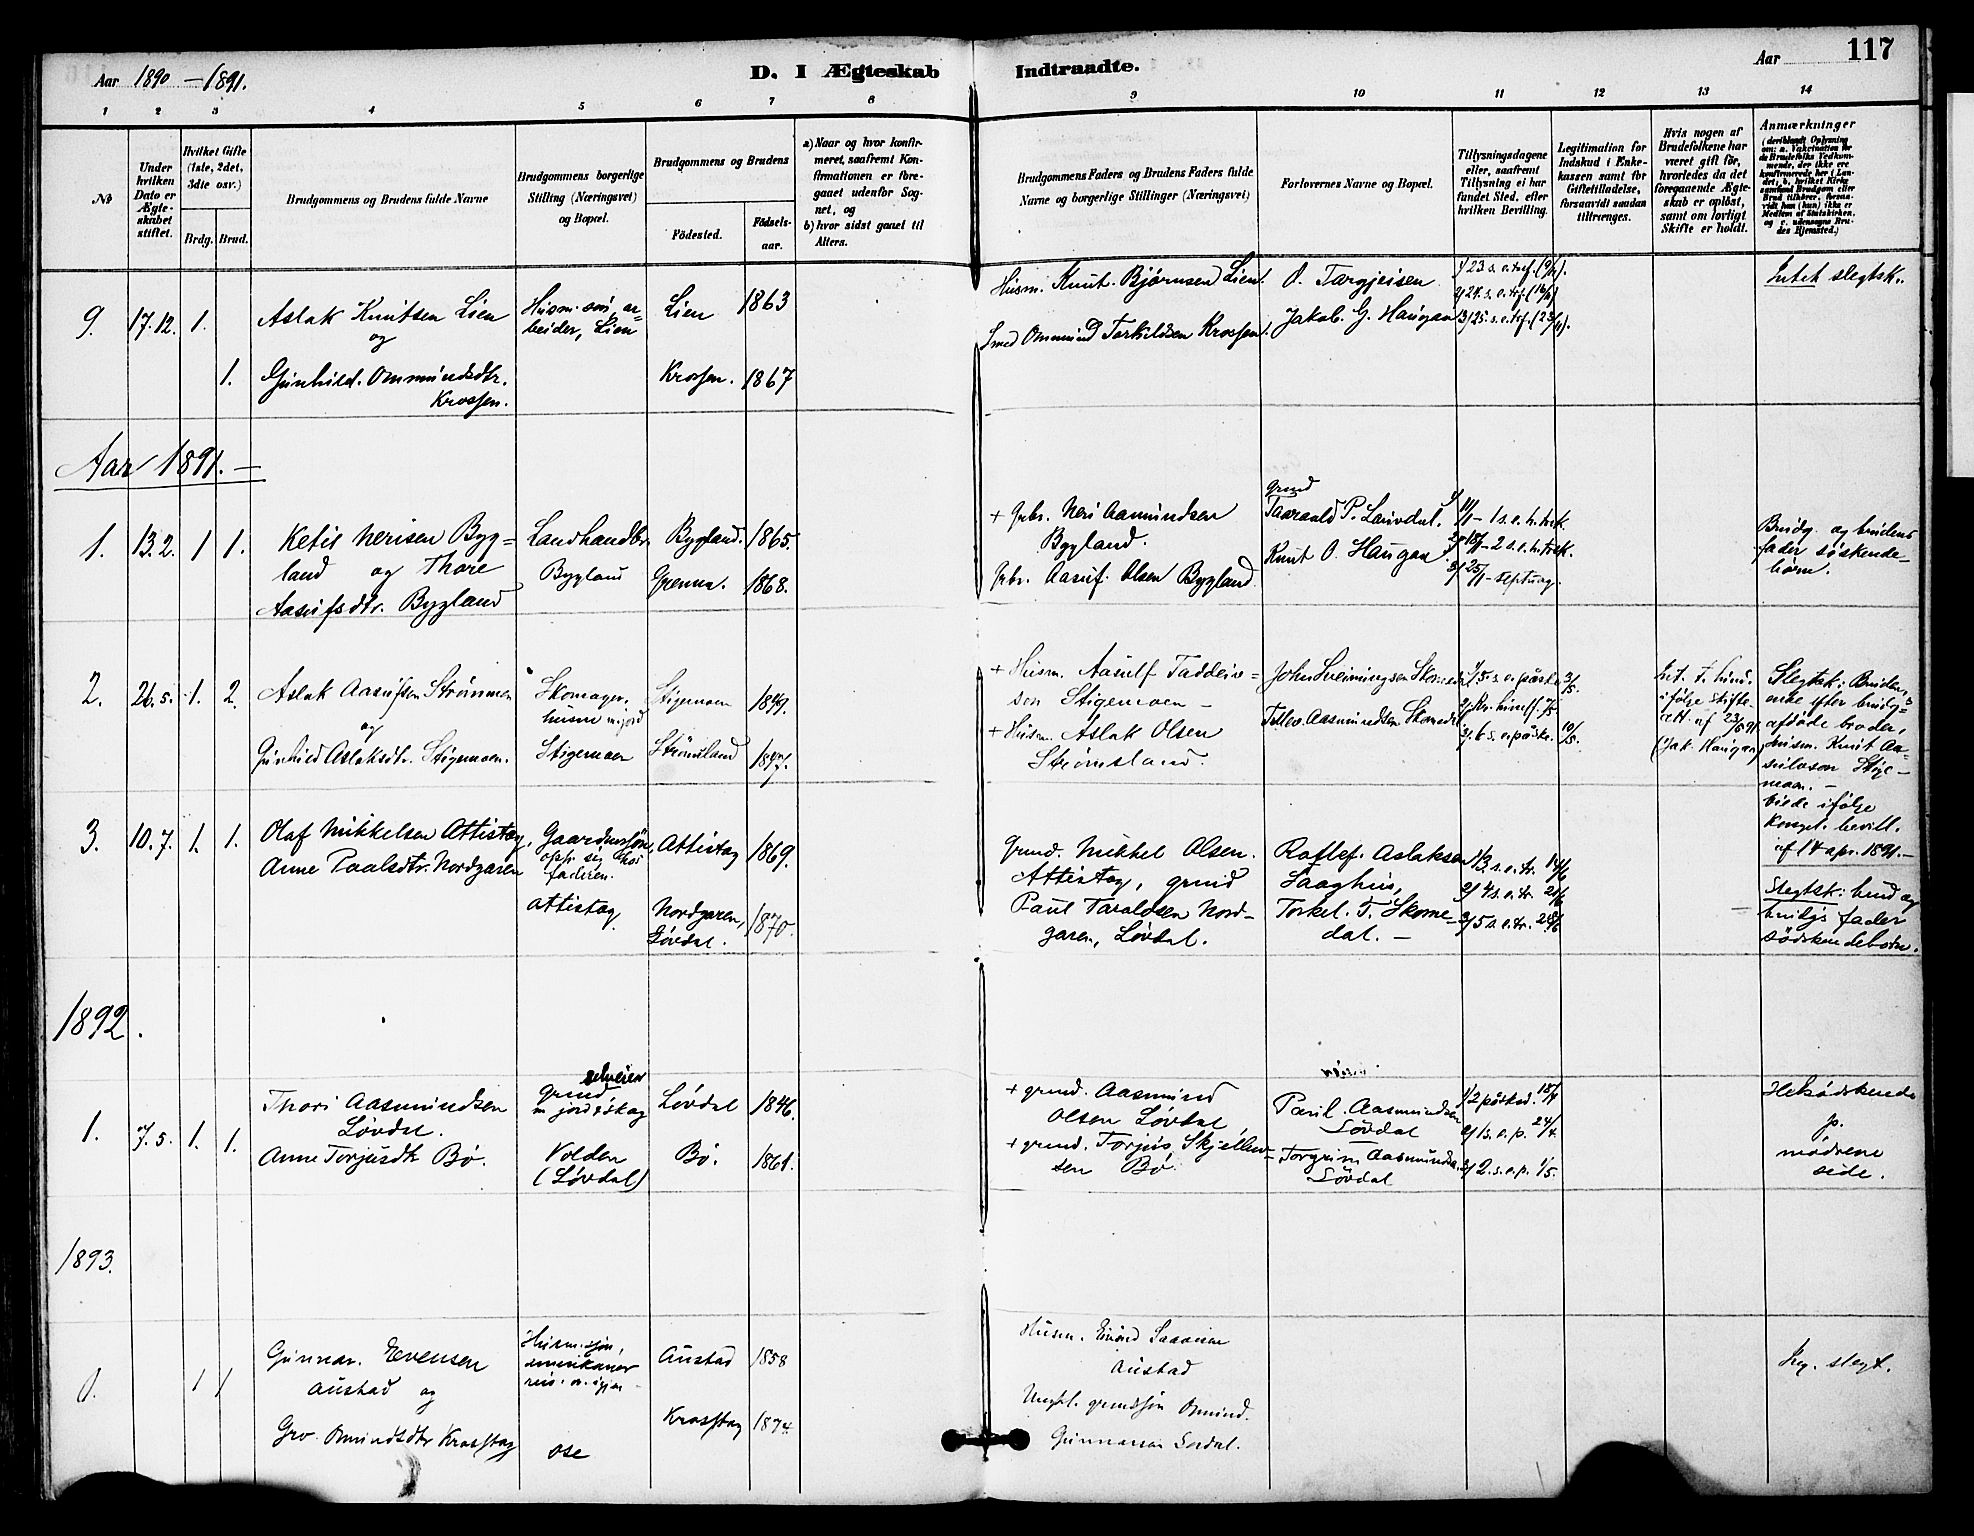 Aar 1890 – 1891.
D. I Ægteskab Indtraadte.
Aar
117
1 2 3 4 5 6 7 8 9 10 11 12 13 14
№
Under hvilken Dato er Ægteskabet stiftet.
Hvilket Gifte (1ste, 2det, 3die osv.)
Brdg. Brud.
Brudgommens og Brudens fulde Navne
Brudgommens borgerlige Stilling (Næringsvei) og Bopæl.
Brudgommens og Brudens
Fødested.
Fødselsaar.
a) Naar og hvor konfirmeret, saafremt Konfirmationen er foregaaet udenfor Sognet, og
b) hvor sidst gaaet til Alters.
Brudgommens Faders og Brudens Faders fulde Navne og borgerlige Stillinger (Næringsvei)
Forlovernes Navne og Bopæl.
Tillysningsdagene eller, saafremt Tillysning ei har fundet Sted, efter hvilken Bevilling.
Legitimation for Indskud i Enkekassen samt for Giftetilladelse, forsaavidt saadan tiltrænges.
Hvis nogen af Brudefolkene har været gift før, hvorledes da det foregaaende Ægteskab er opløst, samt om lovligt Skifte er holdt.
Anmærkninger
9. 17.12. 1. Aslak Knutsen Lien
og
Husm. søn, arbeider, Lien
Lien 1863
Husm. Knut Bjørnsen Lien.
O. Targjeisen
1) 23 s. e. tref. (9/11).
2) 24. s. e. trf. (16/11)
3) 25. s. e. tref. (23/11).
Intet slegtsk.
1. Gunhild Ommundsdtr.
Krossen.
Krossen. 1867
Smed Ommund Torkildsen Krossen.
Jakob. G. Haugan
Aar 1891. –
1. 13.2. 1 1. Ketil Nerisen Bygland
og Thore
Aasufsdtr. Bygland
Landhandlr.
Bygland
Bygland. 1865.
Grenna. 1868.
+ Gbr. Neri Aamundsen
Bygland.
Gbr. Aasuf. Olsen Bygland.
grmd
Taarald P. Lauvdal.
Knut O. Haugan
1) 11/1 – 1 s. e. h. trek.
2) 18/1 – 2 s. e. h. trek.
3) 25/1 – septuag.
Brudg. og brudens
fader søskende-
børn.
2. 26.5. 1. 2. Aslak Aasufsen Strømmen
og
Gunhild Aslaksdtr. Stigemoen.
Skomager.
husm m jord
Stigemoen
Stigemoen 1849.
Strømsland
+ Husm. Aasulf Taddeiv-
sen Stigemoen –
+ Husm. Aslak Olsen
Strømsland.
John Sveinungsen Skomedal
Tellev. Aasmundsen Skomedal
1) 5. s. e. påske 3/5.
2) Kr. himelf. 7/5
3) 6 s. e. påske. 10/5.
ifølge skifte-
att. af 23/5 91.
(Jak. Haugan)
Slegtsk: Bruden,
enke efter brudg-
afdøde broder,
husm. Knut Aa-
sulvson Stige-
moen. –
Viede ifølge
kongel. bevill.
af 14 apr. 1891. –
3. 10.7. 1. 1. Olaf Mikkelsen Attistog,
Anne Paalsdtr. Nordgaren
Gaardmssøn,
opp. sig hos
faderen.
Attistog.
Attistog 1869.
Nordgaren,
Løvdal. 1870.
Grmd. Mikkel Olsen.
Attistog, grmd
Paul Taraldsen Nord-
garen, Løvdal.
Rollef. Aslaksen
Haaghus,
Torkel. T. Skome-
dal. –
1) 3. s. e. tr. 14/6
2) 4 s. e. tr. 21/6
3) 5 s. e. tr. 28/6
Slegtsk: brud og
brudgs fader
sødskendebørn.
1892.
1. 7.5. 1. 1. Thori Aasmundsen
Løvdal.
Anne Torjusdtr Bø.
selveier
grmd
m jord & skog
Volden
(Løvdal)
Løvdal 1846.
Bø. 1861.
+ grmd. Aasmund
Olsen Løvdal
+ grmd. Torjus Skjellev-
sen Bø.
Paul. Aasmundsen
Løvdal
Torgrim Aasmundsn.
Løvdal
1) 2 påskd. 18/4
2) 1 s. e. p. 24/4.
3) 2. s. e. p. 1/5.
Helsødskende
p.
mødrene
side.
1893.
1. 1 1 Gunnar. Evensen
Austad og
Gro. Omundsdtr Krosstog
Husm. søn,
amerikaner
reis. o. igjen –
ose
Austad 1858
Krosstog 1874.
Husm. Eivind
Austad
Ungk. grmdsøn Omund.
Gunnarson
Ing. slegt.